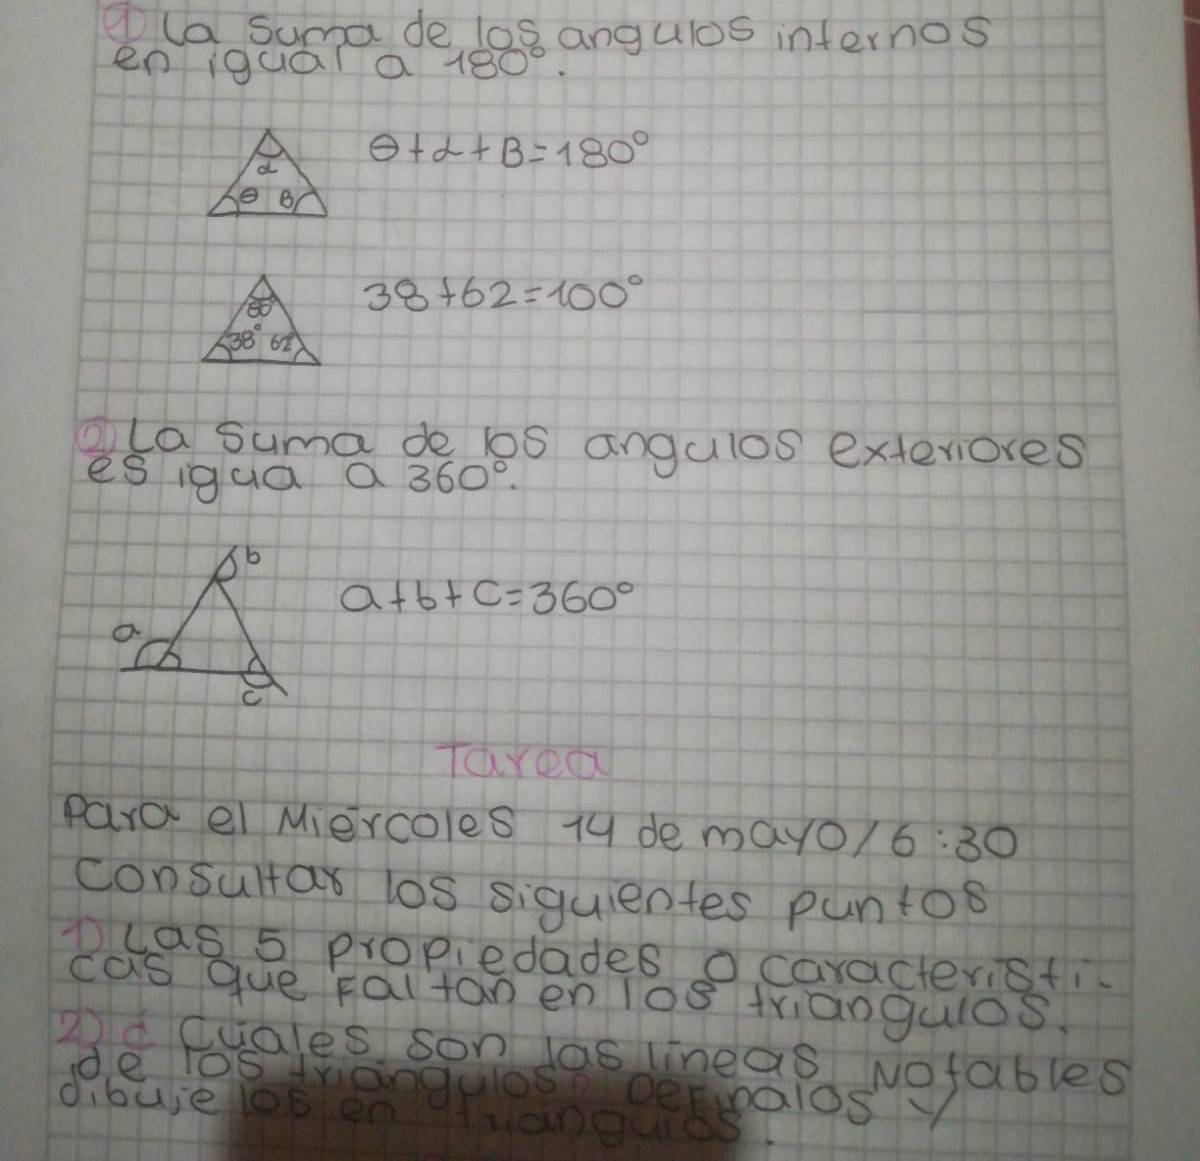 1 La suma de los angulos internos
en igual a 180°.
θ+α+B=180°
α
θ B
38+62=100°
80°
38° 62
2 La suma de los angulos exteriores
es igua a 360°.
b
a+b+c=360°
a
c
Tarea
Para el Miércoles 14 de mayo/6:30
Consultar los siguientes puntos
1) Las 5 propiedades o caracteristi-
cas que Faltan en los triangulos.
2) ¿ Cuales son las líneas Notables
de los triangulos? Definalos y
dibuje los en triangulos.